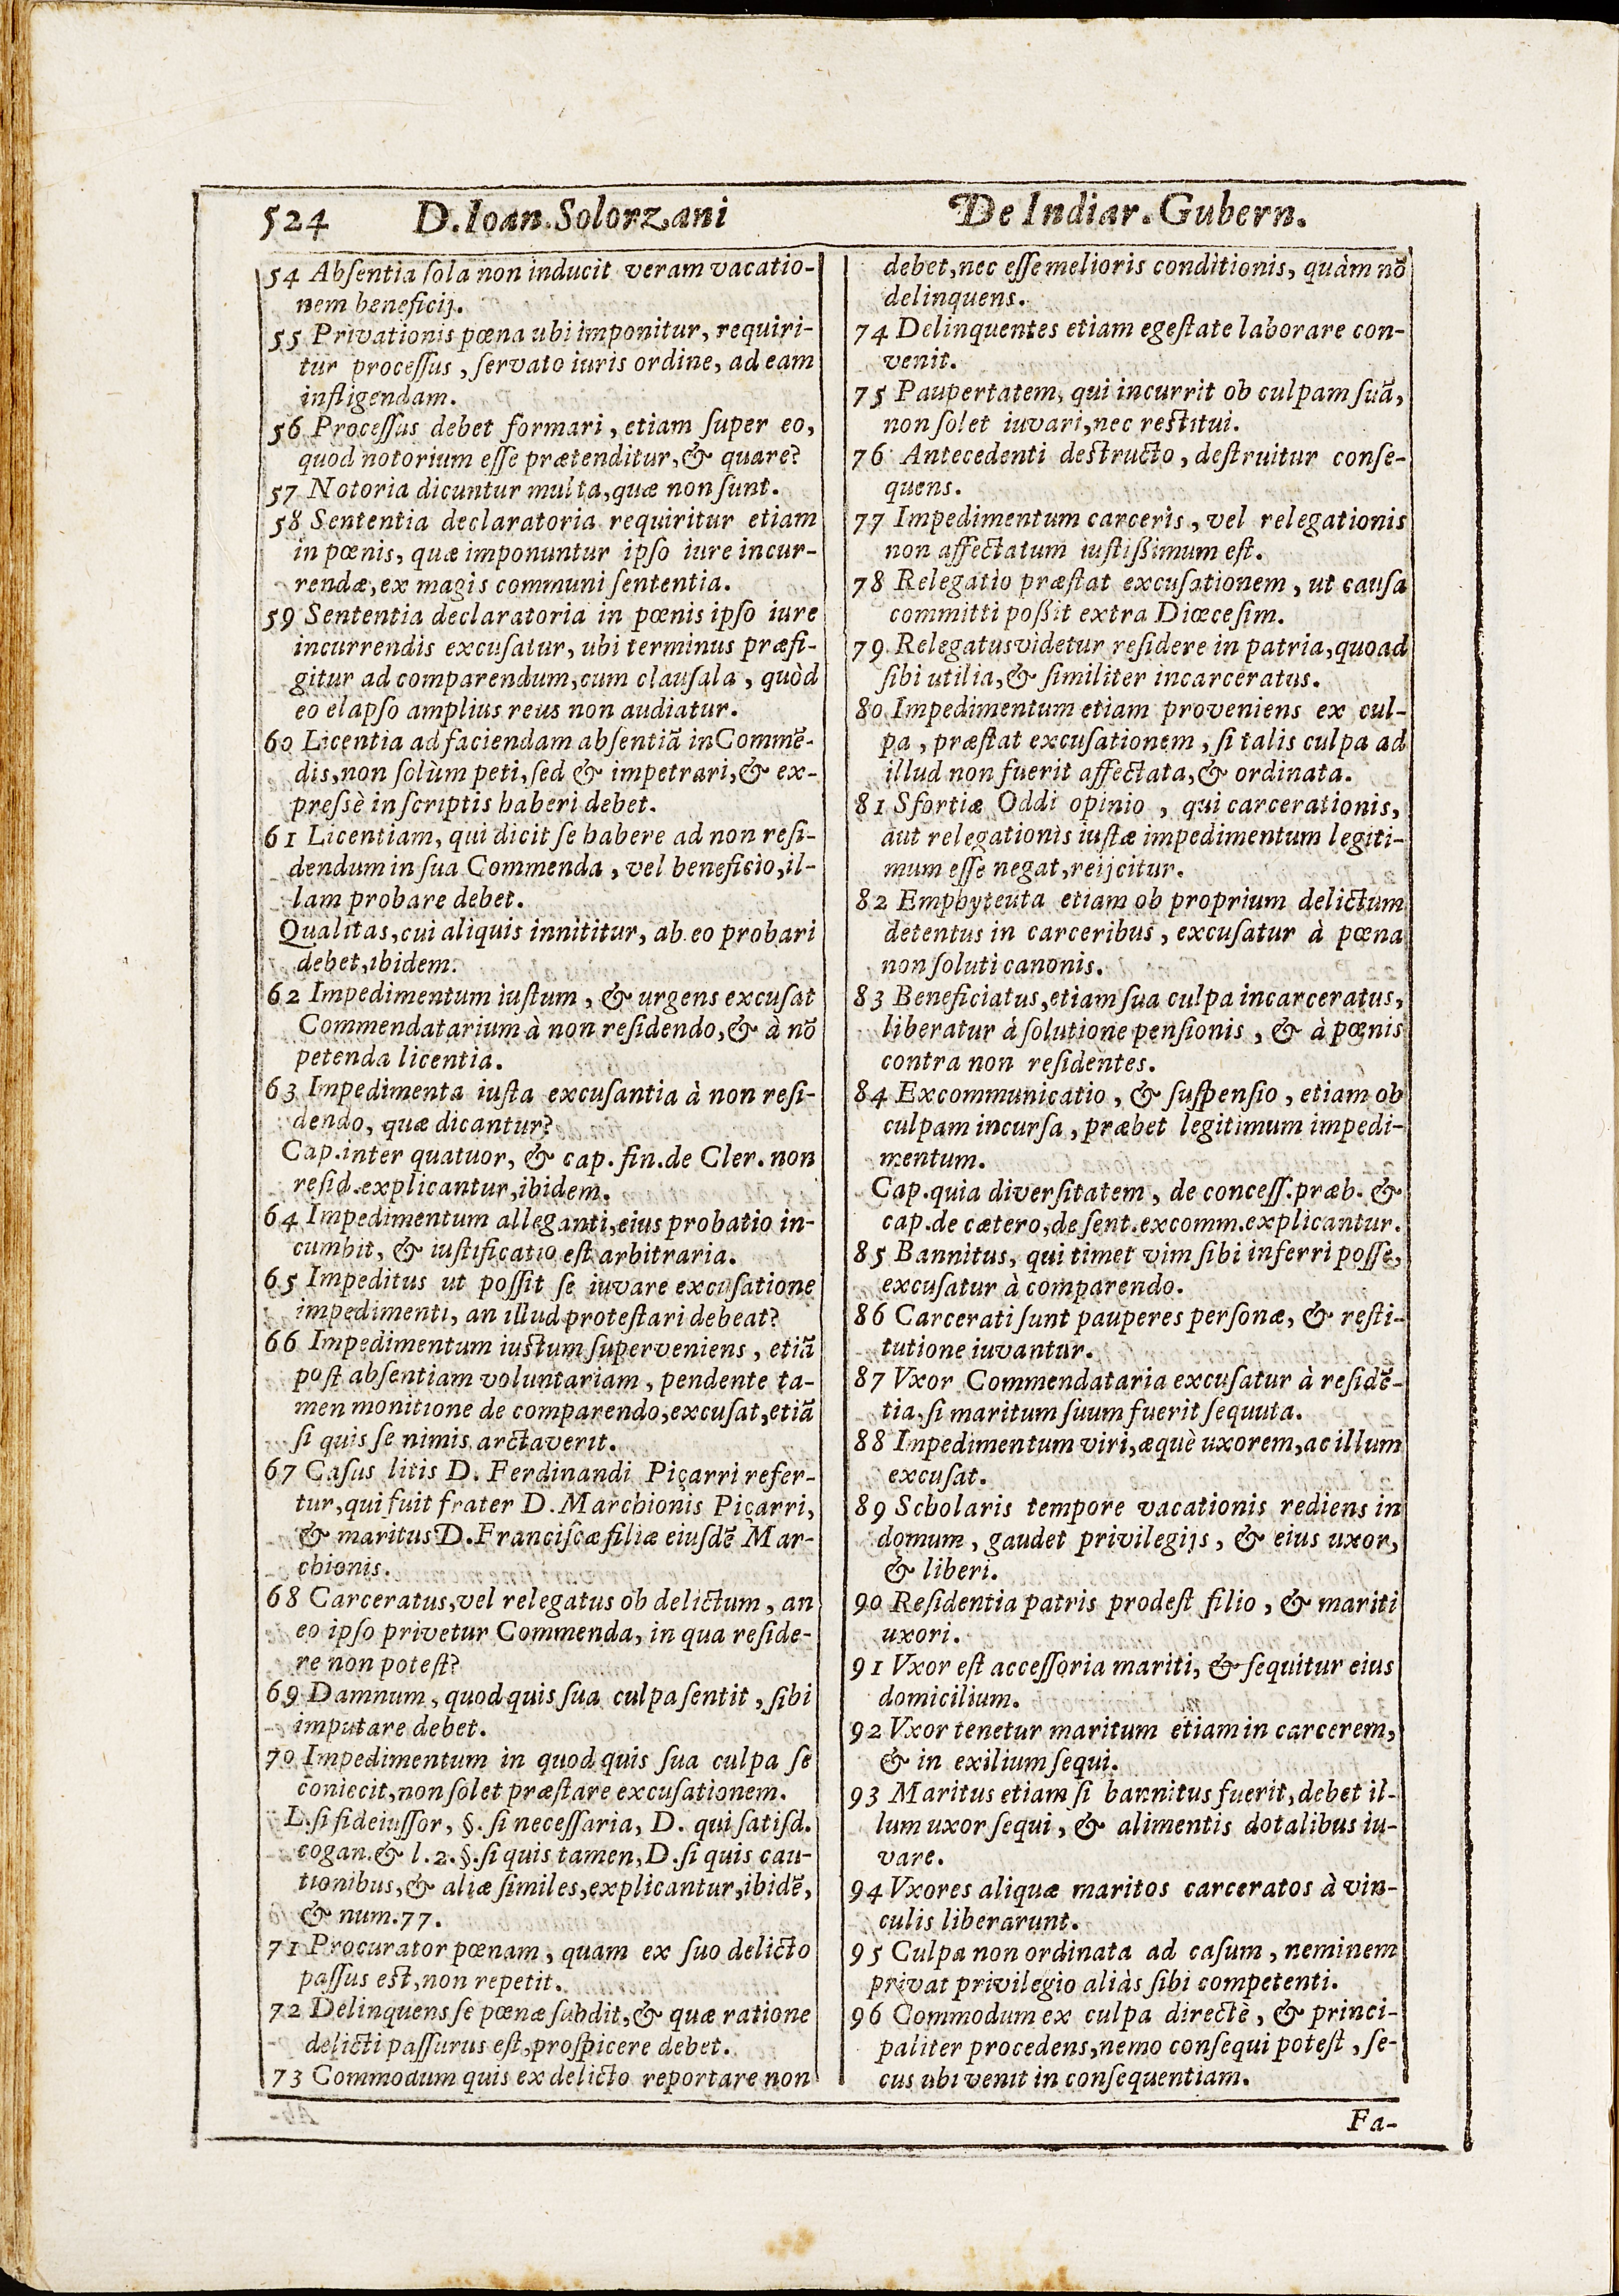 524 D.Ioan.Solorzani De Indiar.Gubern.
54 Abſentia ſola non inducit veram vacatio-
nem beneficij.
55 Privationis pœna ubi imponitur, requiri-
tur proceſſus, ſervato iuris ordine, ad eam
infligendam.
56 Proceſſus debet formari, etiam ſuper eo,
quod notorium eſſe prætenditur, & quare?
57 Notoria dicuntur multa, quæ non ſunt.
58 Sententia declaratoria requiritur etiam
in pœnis, quæ imponuntur ipſo iure incur-
rendæ, ex magis communi ſententia.
59 Sententia declaratoria in pœnis ipſo iure
incurrendis excuſatur, ubi terminus præfi-
gitur ad comparendum, cum clauſala, quòd
eo elapſo amplius reus non audiatur.
60 Licentia ad faciendam abſentiã in Commẽ-
dis, non ſolùm peti, ſed & impetrari, & ex-
preſsè in ſcriptis haberi debet.
61 Licentiam, qui dicit ſe habere ad non reſi-
dendum in ſua Commenda, vel beneficio, il-
lam probare debet.
Qualitas, cui aliquis innititur, ab eo probari
debet, ibidem.
62 Impedimentum iuſtum, & urgens excuſat
Commendatarium à non reſidendo, & à nõ
petenda licentia.
63 Impedimenta iuſta excuſantia à non reſi-
dendo, quæ dicantur?
Cap. inter quatuor, & cap. fin. de Cler. non
reſid. explicantur, ibidem.
64 Impedimentum alleganti, eius probatio in-
cumbit, & iuſtificatio eſt arbitraria.
65 Impeditus ut poſſit ſe iuvare excuſatione
impedimenti, an illud proteſtari debeat?
66 Impedimentum iuſtum ſuperveniens, etiã
poſt abſentiam voluntariam, pendente ta-
men monitione de comparendo, excuſat, etiã
ſi quis ſe nimis arctaverit.
67 Caſus litis D. Ferdinandi Piçarri refer-
tur, qui fuit frater D. Marchionis Piçarri,
& maritus D. Franciſcæ filiæ eiuſdẽ Mar-
chionis.
68 Carceratus, vel relegatus ob delictum, an
eo ipſo privetur Commenda, in qua reſide-
re non poteſt?
69 Damnum, quod quis ſua culpa ſentit, ſibi
imputare debet.
70 Impedimentum in quod quis ſua culpa ſe
coniecit, non ſolet præſtare excuſationem.
L. ſi fideiuſſor, §. ſi neceſſaria, D. qui ſatiſd.
cogan. & l. 2. §. ſi quis tamen, D. ſi quis cau-
tionibus, & aliæ ſimiles, explicantur, ibidẽ,
& num. 77.
71 Procurator pœnam, quam ex ſuo delicto
paſſus eſt, non repetit.
72 Delinquens ſe pœnæ ſubdit, & quæ ratione
delicti paſſurus eſt, proſpicere debet.
73 Commodum quis ex delicto reportare non
debet, nec eſſe melioris conditionis, quàm nõ
delinquens.
74 Delinquentes etiam egeſtate laborare con-
venit.
75 Paupertatem, qui incurrit ob culpam ſuã,
non ſolet iuvari, nec reſtitui.
76 Antecedenti deſtructo, deſtruitur conſe-
quens.
77 Impedimentum carceris, vel relegationis
non affectatum iuſtißimum eſt.
78 Relegatio præſtat excuſationem, ut cauſa
committi poßit extra Diœceſim.
79 Relegatus videtur reſidere in patria, quoad
ſibi utilia, & ſimiliter incarceratus.
80 Impedimentum etiam proveniens ex cul-
pa, præſtat excuſationem, ſi talis culpa ad
illud non fuerit affectata, & ordinata.
81 Sfortiæ Oddi opinio, qui carcerationis,
aut relegationis iuſtæ impedimentum legiti-
mum eſſe negat, reijcitur.
82 Emphyteuta etiam ob proprium delictum
detentus in carceribus, excuſatur à pœna
non ſoluti canonis.
83 Beneficiatus, etiam ſua culpa incarceratus,
liberatur à ſolutione penſionis, & à pœnis
contra non reſidentes.
84 Excommunicatio, & ſuſpenſio, etiam ob
culpam incurſa, præbet legitimum impedi-
mentum.
Cap. quia diverſitatem, de conceſſ. præb. &
cap. de cætero, de ſent. excomm. explicantur.
85 Bannitus, qui timet vim ſibi inferri poſſe,
excuſatur à comparendo.
86 Carcerati ſunt pauperes perſonæ, & reſti-
tutione iuvantur.
87 Vxor Commendataria excuſatur à reſidẽ-
tia, ſi maritum ſuum fuerit ſequuta.
88 Inpedimentum viri, æquè uxorem, ac illum
excuſat.
89 Scholaris tempore vacationis rediens in
domum, gaudet privilegijs, & eius uxor,
& liberi.
90 Reſidentia patris prodeſt filio, & mariti
uxori.
91 Vxor eſt acceſſoria mariti, & ſequitur eius
domicilium.
92 Vxor tenetur maritum etiam in carcerem,
& in exilium ſequi.
93 Maritus etiam ſi bannitus fuerit, debet il-
lum uxor ſequi, & alimentis dotalibus iu-
vare.
94 Vxores aliquæ maritos carceratos à vin-
culis liberarunt.
95 Culpa non ordinata ad caſum, neminem
privat privilegio aliàs ſibi competenti.
96 Commodum ex culpa directè, & princi-
paliter procedens, nemo conſequi poteſt, ſe-
cus ubi venit in conſequentiam.
Fa-